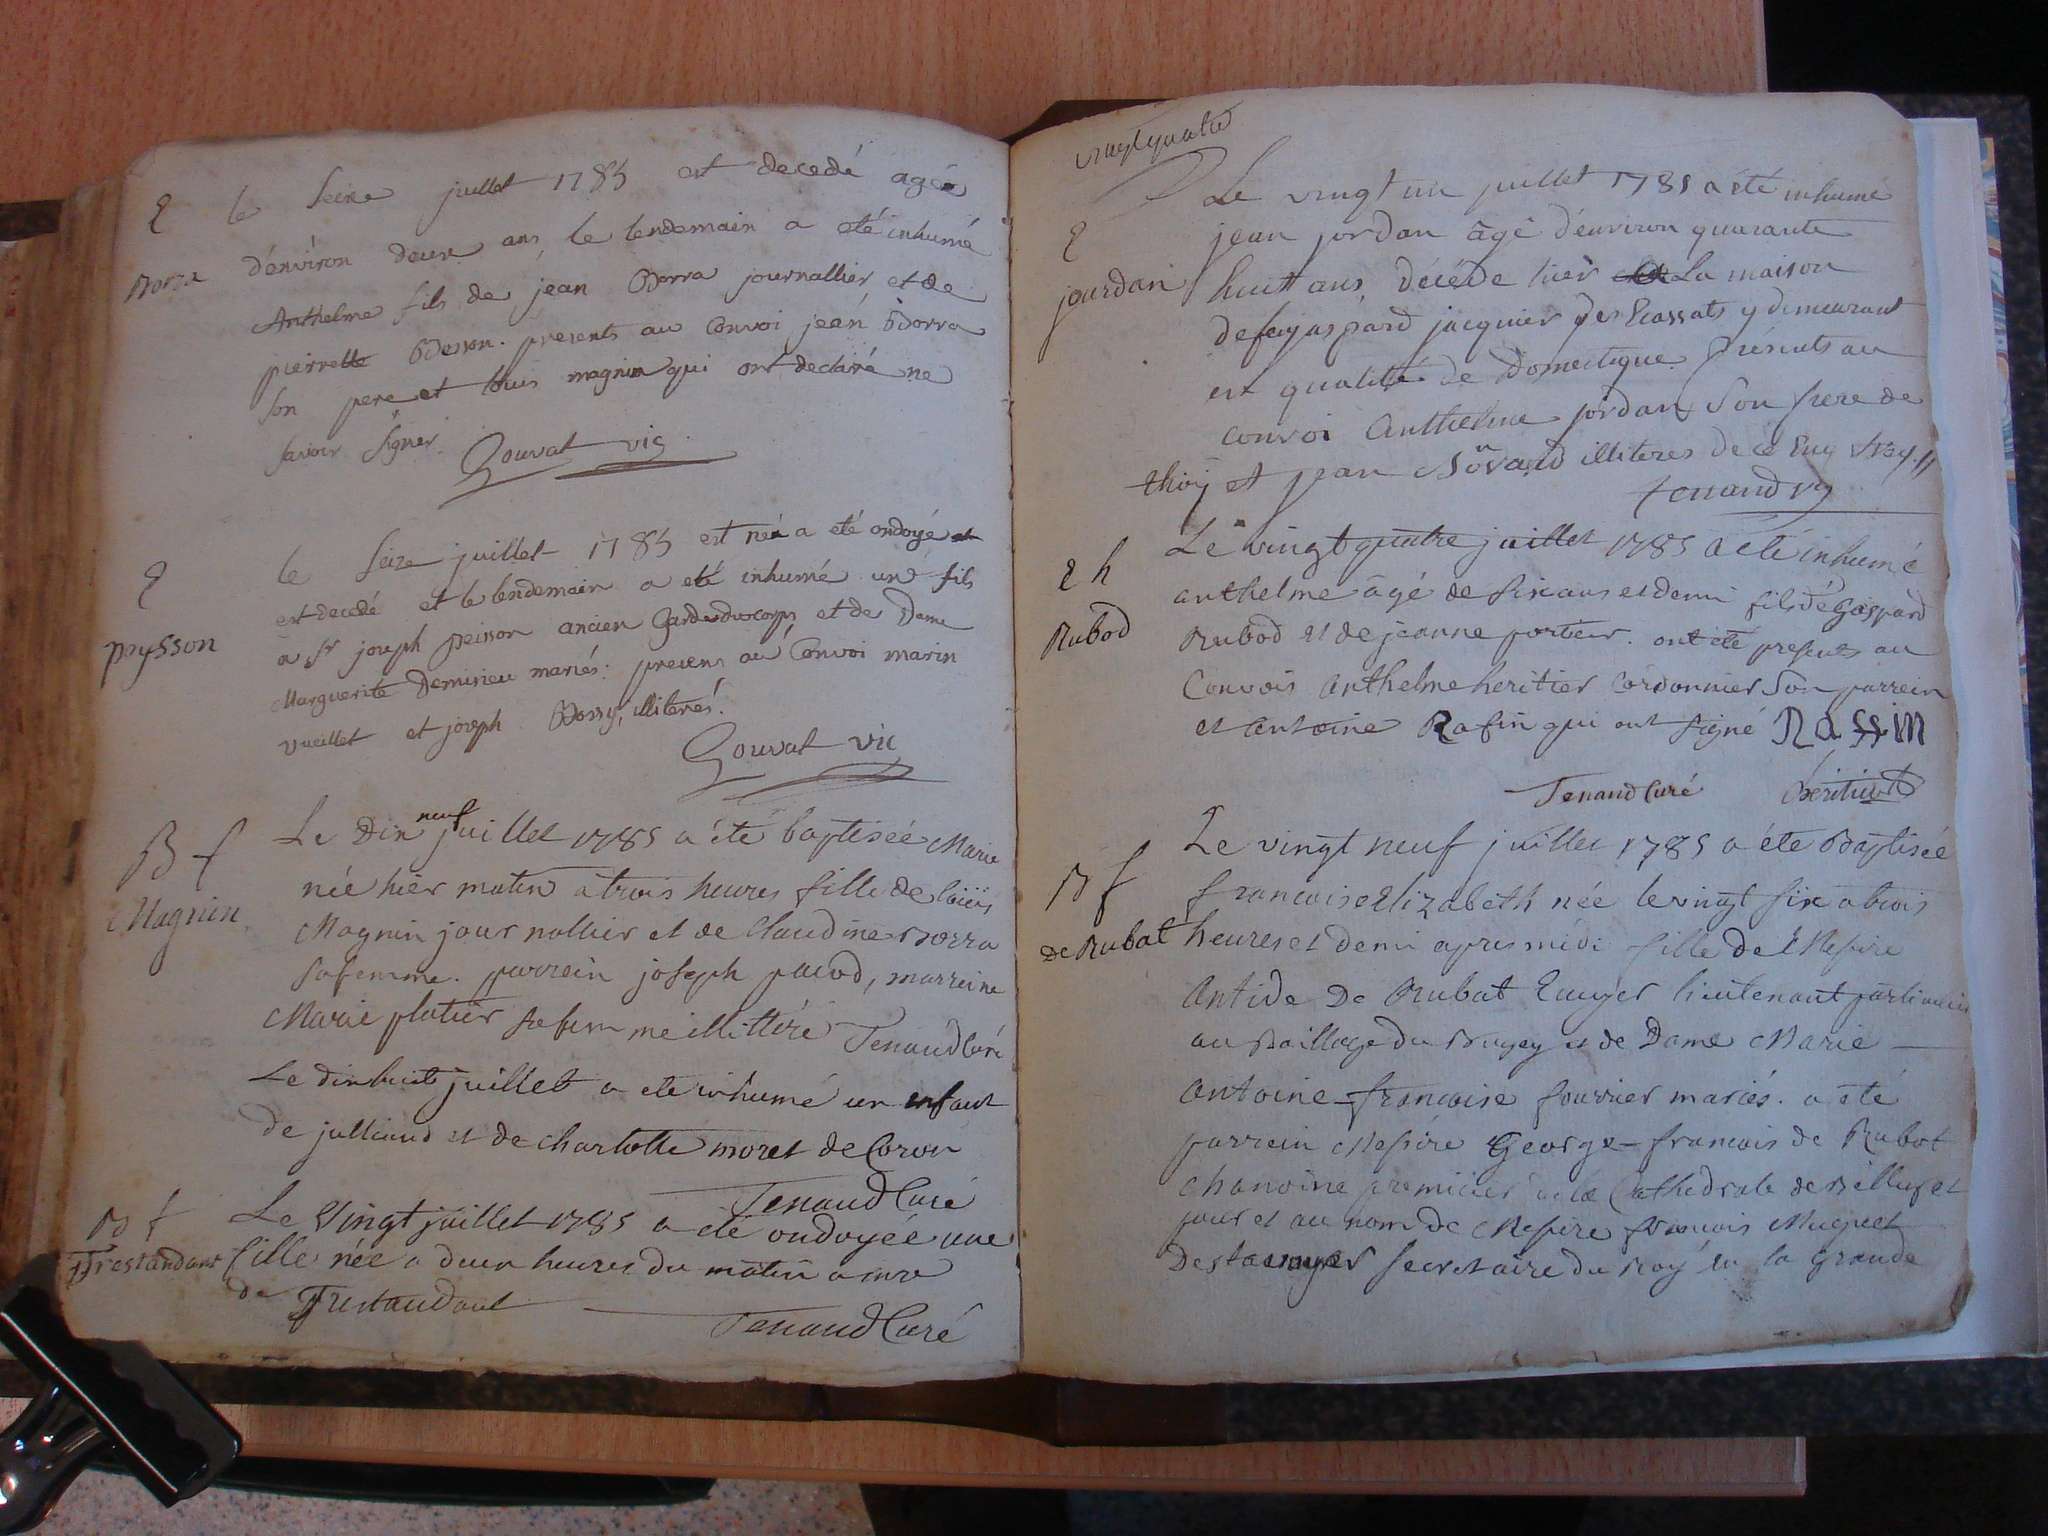 E
Borra
le seize juillet 1785 est decedé agée
d'énviron deux ans, le lendemain a eté inhumé
Anthelme fils de jean Borra journallier et de
pierrette Besson. presents au Convoi jean Borra
son pere et louis magnin qui ont declaré ne
savoir signer. Gouvat vic
E
peysson
le seize juillet 1785 est né a eté ondoyé et
est decedé et le lendemain a eté inhumé un fils
a sr joseph peisson ancien Gardeducorps et de Dame
Marguerite Demirieu mariés: presens au Convoi marin
vueillet et joseph Bossy, illiterés.
Gouvat vic
B f
Magnin
Le Dix neuf juillet 1785 a été baptiseé Marie
née hier matin a trois heures fille de loüis
Magnin journallier et de Claudine Borra
sa femme. parrein joseph pacod, marreine
Marie platier sa femme illitteré Tenand Curé
Le dixhuit juillet a eté inhumé un enfant
de julliand et de charlotte moret de Coron
Tenand Curé
B f
Trestandant
Le Vingt juillet 1785 a été ondoyée une
fille née a deux heures du matin a mr
de Trestandant
Tenand Curé
vingtquatre
E
jourdan
Le vingt un juillet 1785 a été inhumé
jean jordan âgé d'énviron quarante
huit ans, décédé hier La maison
de gaspard jacquier des Ecassats y demeurant
en qualité de Domestique. Présents au
convoi Anthelme jordan son frere de
thoy et jean illiteres de ce Enq
Tenand vic
E h
Rubod
Le vingt quatre juillet 1785 a été inhumé
anthelme âgé de six ans et demi fils de Gaspard
Rubod et de jeanne portier. ont été presents au
Convois Anthelme heritier Cordonnier son parrein
et antoine Rafin qui ont signé Rassin
Tenand Curé heritier
B f
De Rubat
Le vingt neuf juillet 1785 a éte Baptiseé
francoise Elizabeth née le vingt six a trois
heures et demi apres midi fille de Messire
Antide De Rubat Ecuyer lieutenant particulier
au Baillage du Bugey et de Dame Marie
Antoine-francoise fourrier mariés. a été
parrein Messire George-francois de Rubat
chanoine premicier de la Cathedrale de Belley et
pour et au nom de Messire francois Muguet
secretaire du Roy en la Grande